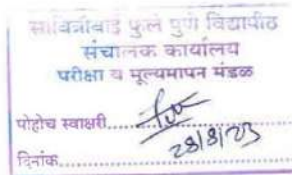 सावित्रीबाई फुले पुणे विद्यापीठ
संचालक कार्यालय
परीक्षा व मूल्यमापन मंडळ
पोहोच स्वाक्षरी
दिनांक 28/8/23